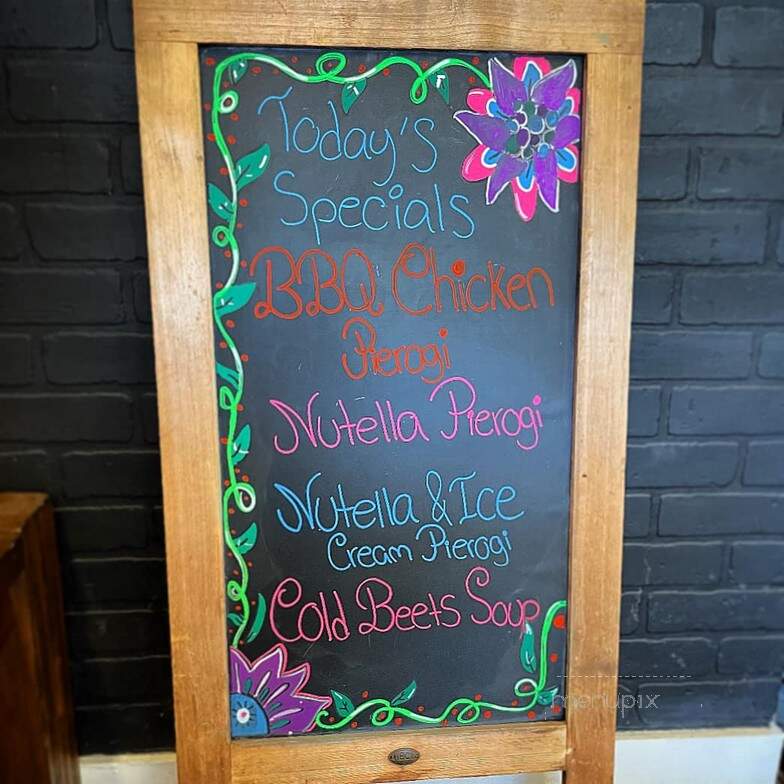 Today's
Specials
BBQ Chicken
Pierogi
Nutella Pierogi
Nutella & Ice
Cream Pierogi
Cold Beets Soup
menupix